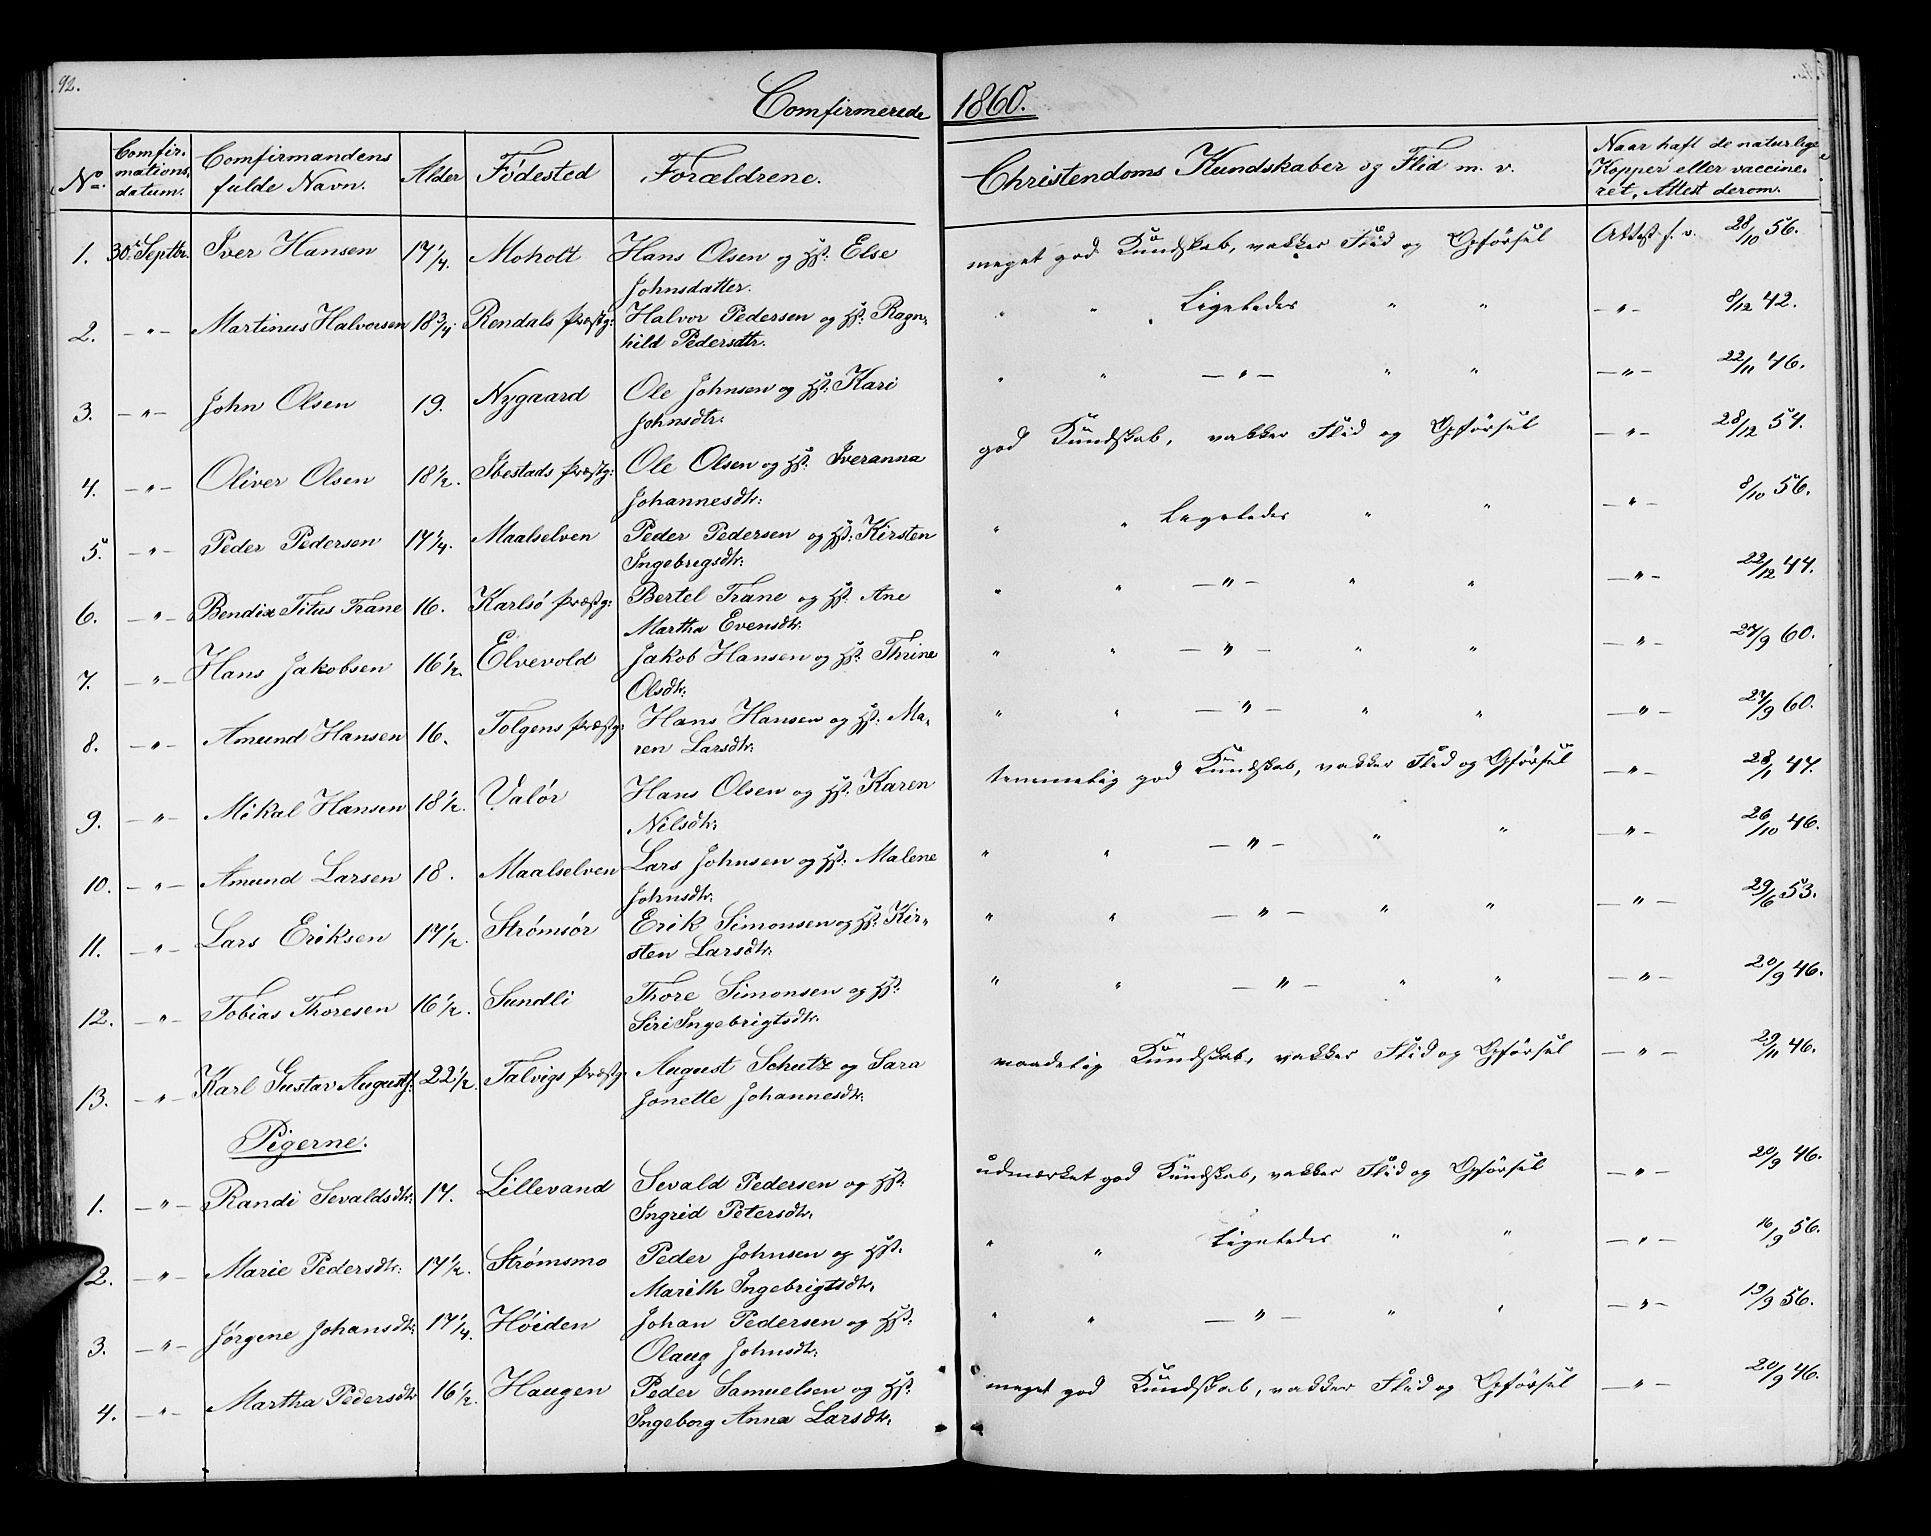 92.
Comfirmerede 1860.
No. Comfirmations datum. Comfirmandens fulde Navn. Alder Fødested Forældrene. Christendoms Kundskaber og Flid m. v. Naar haft de naturlige Kopper eller vaccineret, Attest derom.
1. 30. Septbr. Iver Hansen 17 1/4. Moholt Hans Olsen og Hst: Else Johnsdatter. meget god Kundskab, vakker Flid og Opførsel Attest f. v. 28/10 56.
2. —"— Martinus Halvorsen 18 3/4. Rendals Præstg: Halvor Pedersen og Hst: Ragnhild Pedersdtr. " " Ligeledes " " —"— 8/12 42.
3. —"— John Olsen 19. Nygaard Ole Johnsen og Hst: Kari Johnsdtr: " " —"— " " —"— 22/11 46.
4. —"— Oliver Olsen 18 1/2. Ibestads Præstg: Ole Olsen og Hst: Iveranna Johannesdtr: god Kundskab, vakker Flid og Opførsel —"— 28/12 54.
5. —"— Peder Pedersen 17 1/4. Maalselven Peder Pedersen og Hst: Kirsten Ingebregsdtr: " " Ligeledes " " —"— 8/10 56.
6. —"— Bendix Titus Trane 16. Karlsö Præstg: Bertel Trane og Hst: Ane Martha Evensdtr: " " —"— " " —"— 22/12 44.
7. —"— Hans Jakobsen 16 1/2. Elvevold Jakob Hansen og Hst: Thrine Olsdtr: " " —"— " " —"— 27/9 60.
8. —"— Amund Hansen 16. Tolgens Præstg: Hans Hansen og Hst: Maren Larsdtr: " " —"— " " —"— 27/9 60.
9. —"— Mikal Hansen 18 1/2. Valör Hans Olsen og Hst: Karen Nilsdtr: temmelig god Kundskab, vakker Flid og Opførsel —"— 28/1 47.
10. —"— Amund Larsen 18. Maalselven Lars Johnsen og Hst: Malene Johnsdtr: " " —"— " " —"— 26/10 46.
11. —"— Lars Eriksen 17 1/2. Strømsør Erik Simonsen og Hst: Kirsten Larsdtr: " " —"— " " —"— 29/6 53.
12. —"— Tobias Thoresen 16 1/2. Sundli Thore Simonsen og Hst: Siri Ingebrigtsdtr: " " —"— " " —"— 20/9 46.
13. —"— Karl Gustav August: 22 1/2. Talvigs Præstg: August Schutz og Sara Jonette Johannesdtr: maadelig Kundskab, vakker Flid og Opførsel —"— 29/11 46.
Pigerne.
1. —"— Randi Sevaldsdtr: 17. Lillevand Sevald Pedersen og Hst: Ingrid Petersdtr: udmærket god Kundskab, vakker Flid og Opførsel —"— 20/9 46.
2. —"— Marie Pedersdtr: 17 1/2. Strømsmo Peder Johnsen og Hst. Marith Ingebrigtsdtr: " " Ligeledes " " —"— 16/9 56.
3. —"— Jørgene Johansdtr: 17 1/4. Høiden Johan Pedersen og Hst: Olaug Johnsdtr: " " —"— " " —"— 19/9 56.
4. —"— Martha Pedersdtr 16 1/2. Haugen Peder Samuelsen og Hst: Ingeborg Anna Larsdtr: meget god Kundskab, vakker Flid og Opførsel —"— 20/9 46.